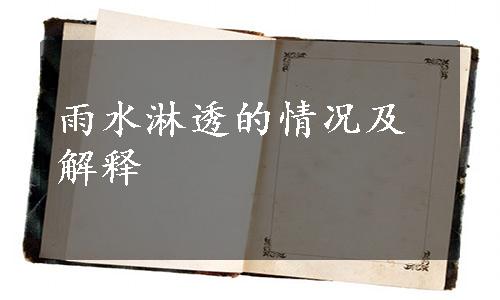 雨水淋透的情况及
解释